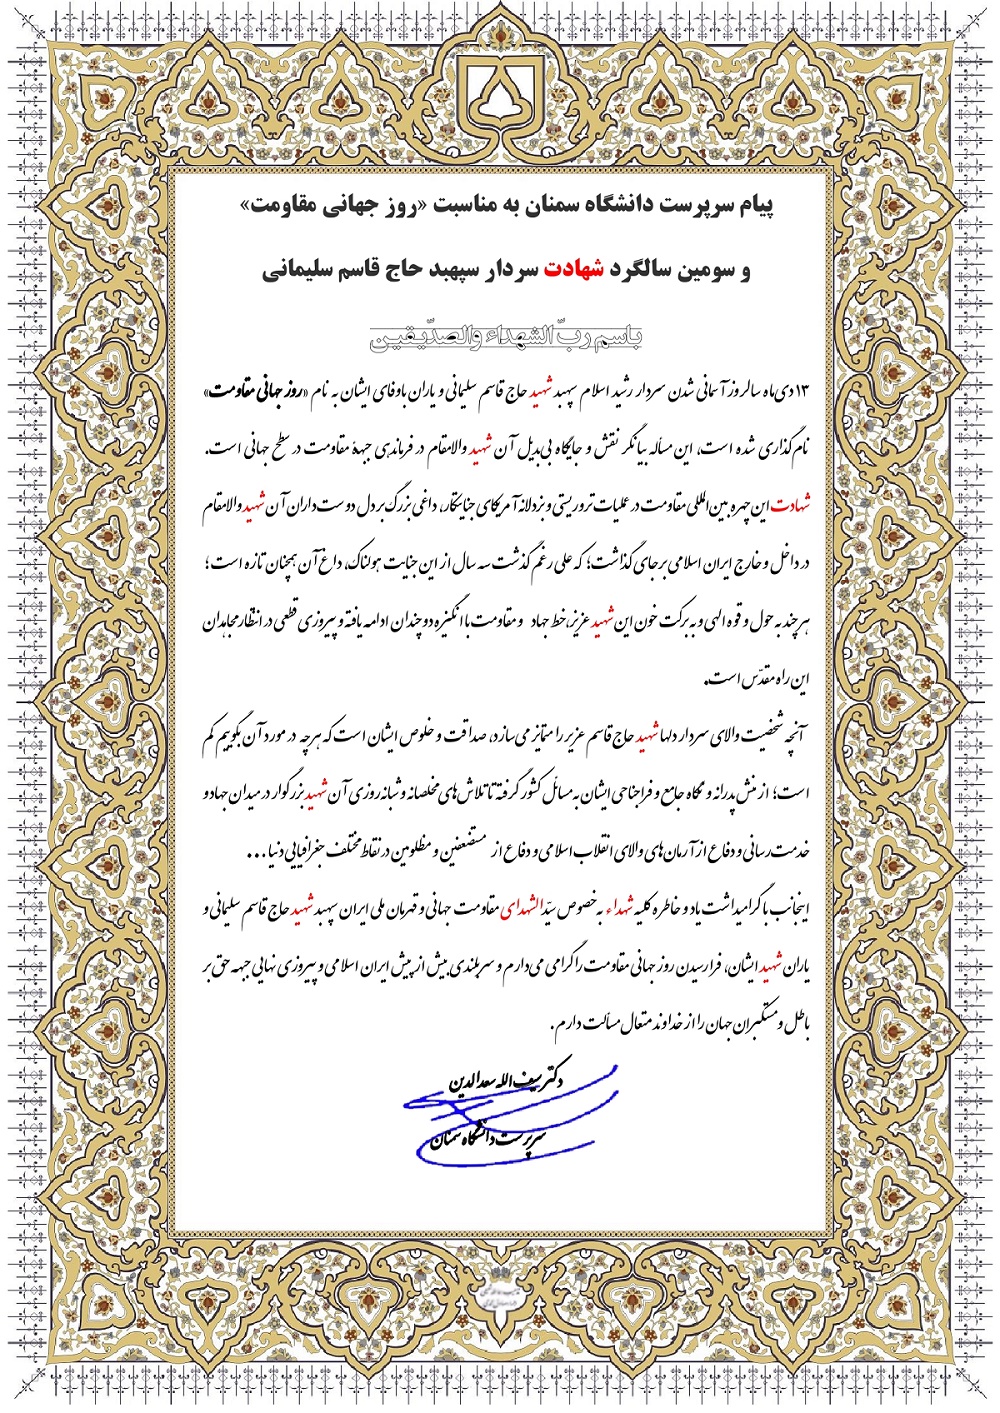 پیام سرپرست دانشگاه سمنان به مناسبت «روز جهانی مقاومت»
و سومین سالگرد شهادت سردار سپهبد حاج قاسم سلیمانی
باسم ربّ الشهداء والصدّیقین
۱۳ دی‌ماه سالروز آسمانی شدن سردار رشید اسلام سپهبد شهید حاج قاسم سلیمانی و یاران باوفای ایشان به نام «روز جهانی مقاومت»
نام‌گذاری شده است، این مسأله بیانگر نقش و جایگاه بی‌بدیل آن شهید والامقام در فرماندهی جبههٔ مقاومت در سطح جهانی است.
شهادت این چهره بین‌المللی مقاومت در عملیات تروریستی و بزدلانه آمریکای جنایتکار، داغی بزرگ بر دل دوست‌داران آن شهید والامقام
در داخل و خارج ایران اسلامی برجای گذاشت؛ که علی رغم گذشت سه سال از این جنایت هولناک، داغ آن همچنان تازه است؛
هرچند به حول و قوه الهی و به برکت خون این شهید عزیز، خط جهاد و مقاومت با انگیزه دوچندان ادامه یافته و پیروزی قطعی در انتظار مجاهدان
این راه مقدّس است.
آنچه شخصیت والای سردار دلها شهید حاج قاسم عزیز را متمایز می‌سازد، صداقت و خلوص ایشان است که هرچه در مورد آن بگوییم کم
است؛ از منش پدرانه و نگاه جامع و فراجناحی ایشان به مسائل کشور گرفته تا تلاش‌های مخلصانه و شبانه روزی آن شهید بزرگوار در میدان جهاد و
خدمت‌رسانی و دفاع از آرمان‌های والای انقلاب اسلامی و دفاع از مستضعفین و مظلومین در نقاط مختلف جغرافیایی دنیا...
اینجانب با گرامیداشت یاد و خاطره کلیه شهداء به‌خصوص سیّدالشهدای مقاومت جهانی و قهرمان ملی ایران سپهبد شهید حاج قاسم سلیمانی و
یاران شهید ایشان، فرارسیدن روز جهانی مقاومت را گرامی می‌دارم و سربلندی بیش از پیش ایران اسلامی و پیروزی نهایی جبهه حق بر
باطل و مستکبران جهان را از خداوند متعال مسألت دارم.
دکتر سیف الله سعدالدین
سرپرست دانشگاه سمنان